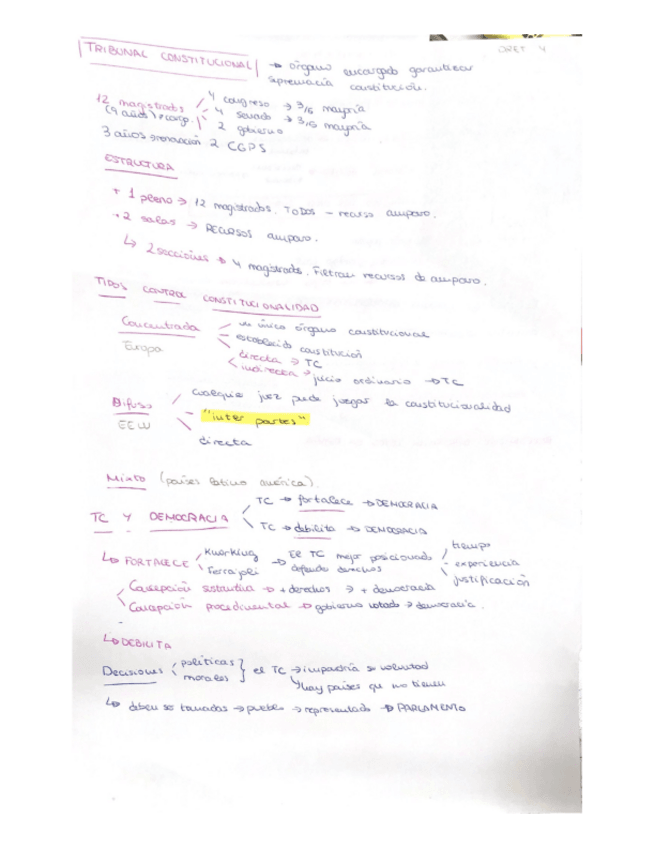 TRIBUNAL CONSTITUCIONAL → órgano encargado garantizar
supremacía constitución.
12 magistrados
(9 años) → cargo.
4 congreso → 3/5 mayoría
4 senado → 3/5 mayoría
2 gobierno
2 CGPJ
3 años → renovación
ESTRUCTURA
+ 1 pleno → 12 magistrados. TODOS - recurso amparo.
+ 2 salas → RECURSOS amparo.
↳ 2 secciones → 4 magistrads. Filtran recursos de amparo.
TIPOS CONTROL CONSTITUCIONALIDAD
Concentrada
Europa
- un único órgano constitucional
- establecido constitución
directa → TC
indirecta → juicio ordinario → TC
Difuso
EEUU
cualquier juez puede juzgar la constitucionalidad
- "inter partes"
directa
Mixto (países latino américa).
TC Y DEMOCRACIA
TC → fortalece → DEMOCRACIA
TC → debilita → DEMOCRACIA
↳ FORTALECE
Ferrajoli
→ El TC mejor posicionado
defiende derechos
tiempo
- experiencia
justificación
Concepción sustantiva → + derechos → + democracia
Concepción procedimental → gobierno votado → democracia.
↳ DEBILITA
Decisiones
políticas
morales
} el TC → impondría su voluntad
↘ hay países que no tienen
↳ deben ser tomadas → pueblo → representado → PARLAMENTO